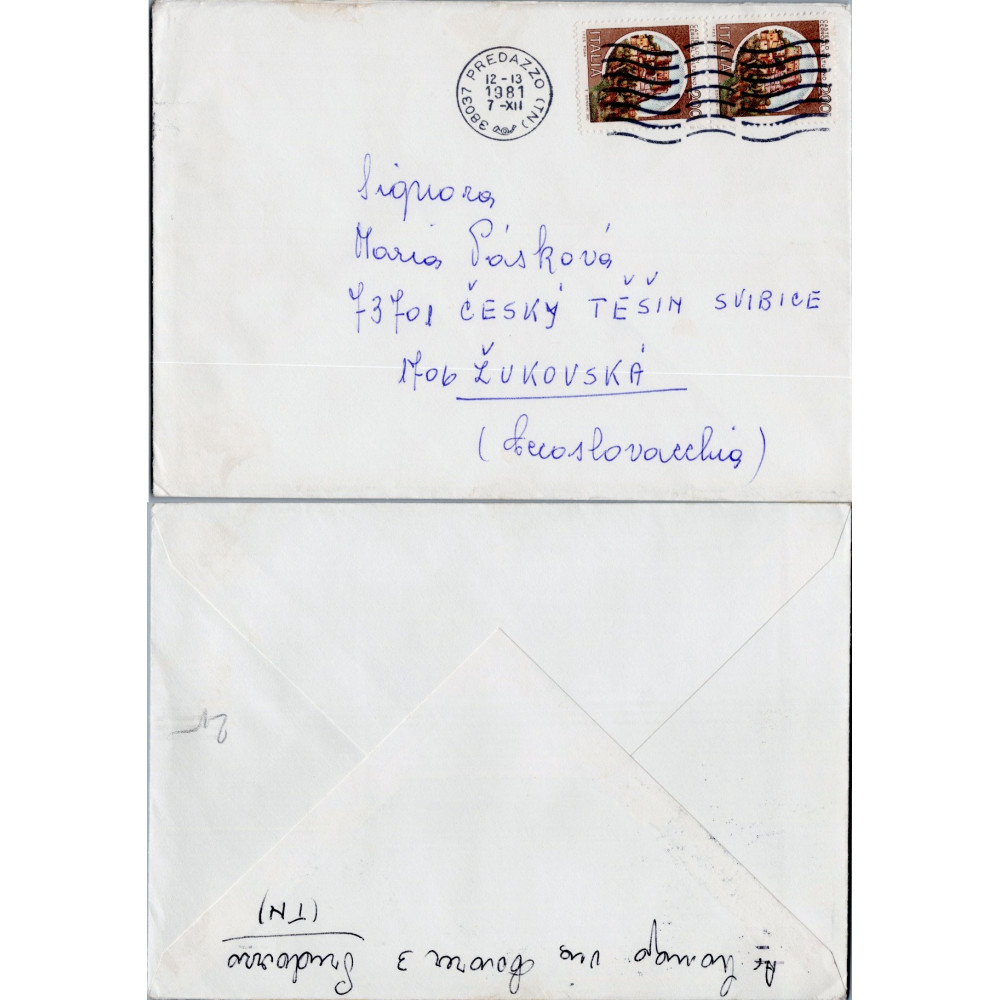 38037 PREDAZZO (TN)
12-13
1981
7-XII
ITALIA
ITALIA
200
200
Signora
Maria Pásková
73701 ČESKÝ TĚŠIN SVIBICE
1706 ŽUKOVSKÁ
(Cecoslovacchia)
via 3 Predazzo
(TN)